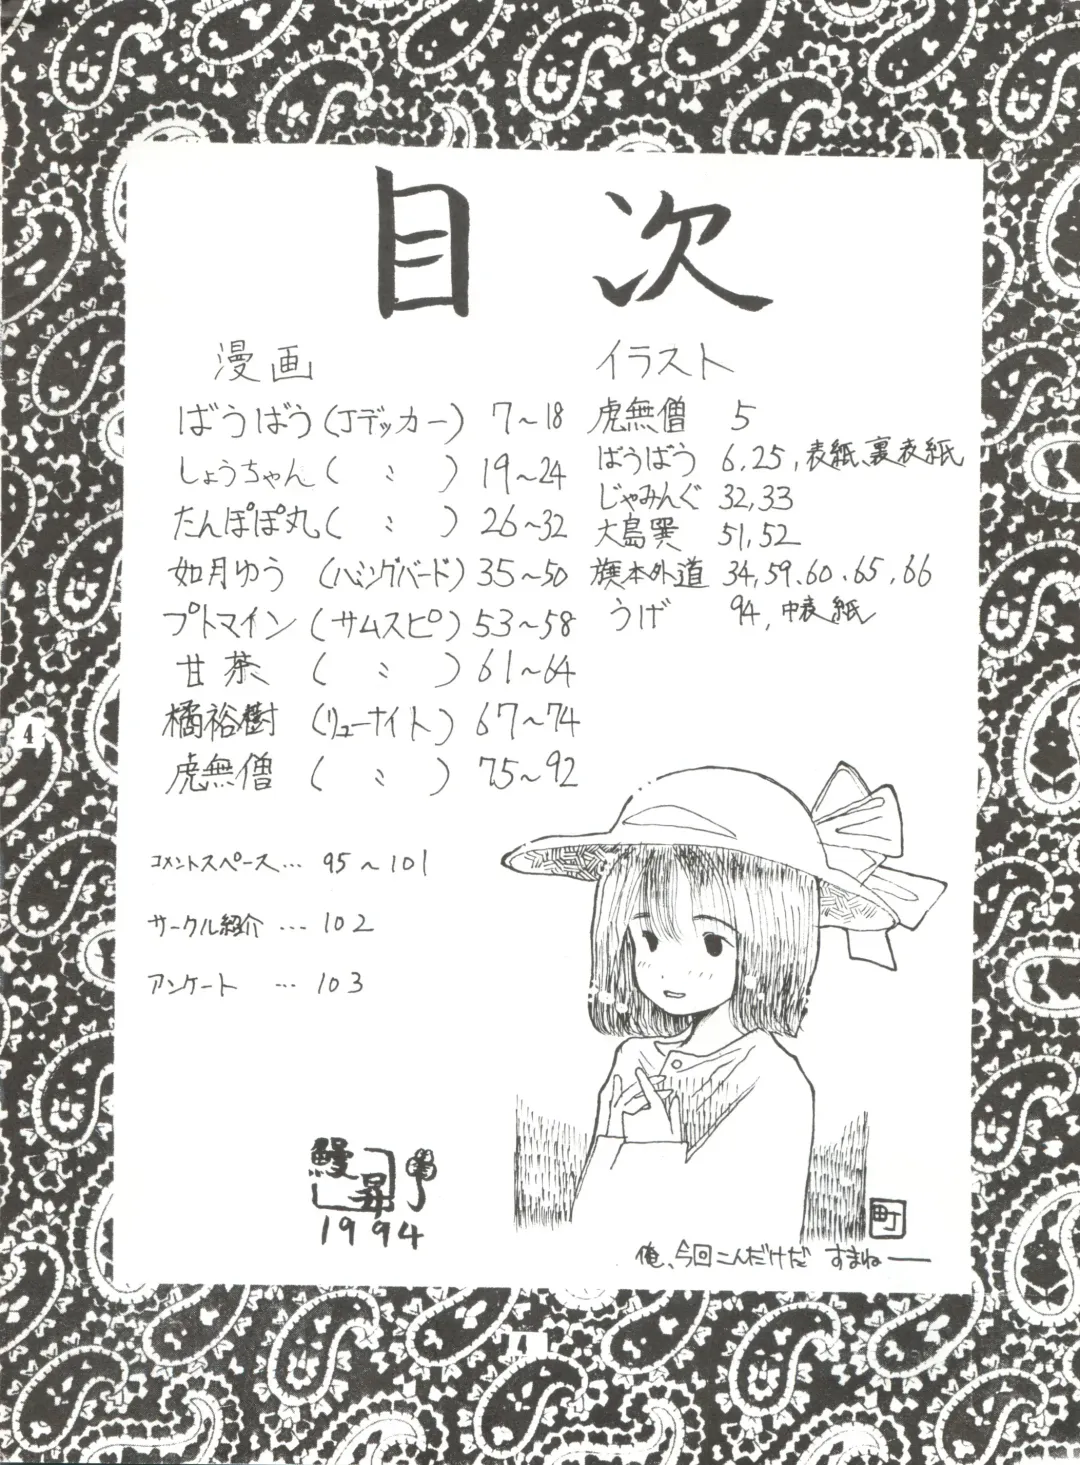 目次
漫画
ばうばう(Jデッカー) 7〜18
しょうちゃん( 〃 ) 19〜24
たんぽぽ丸( 〃 ) 26〜32
如月ゆう (ハミングバード) 35〜50
プトマイン (サムスピ) 53〜58
甘茶 ( 〃 ) 61〜64
橘裕樹 (リューナイト) 67〜74
虎無僧 ( 〃 ) 75〜92
イラスト
虎無僧 5
ばうばう 6,25,表紙、裏表紙
じゃみんぐ 32,33
大島巽 51,52
旗本外道 34,59,60,65,66
うげ 94,中表紙
コメントスペース… 95〜101
サークル紹介 … 102
アンケート … 103
鰻昇
1994
町
俺、今回こんだけだ すまねー
4
4